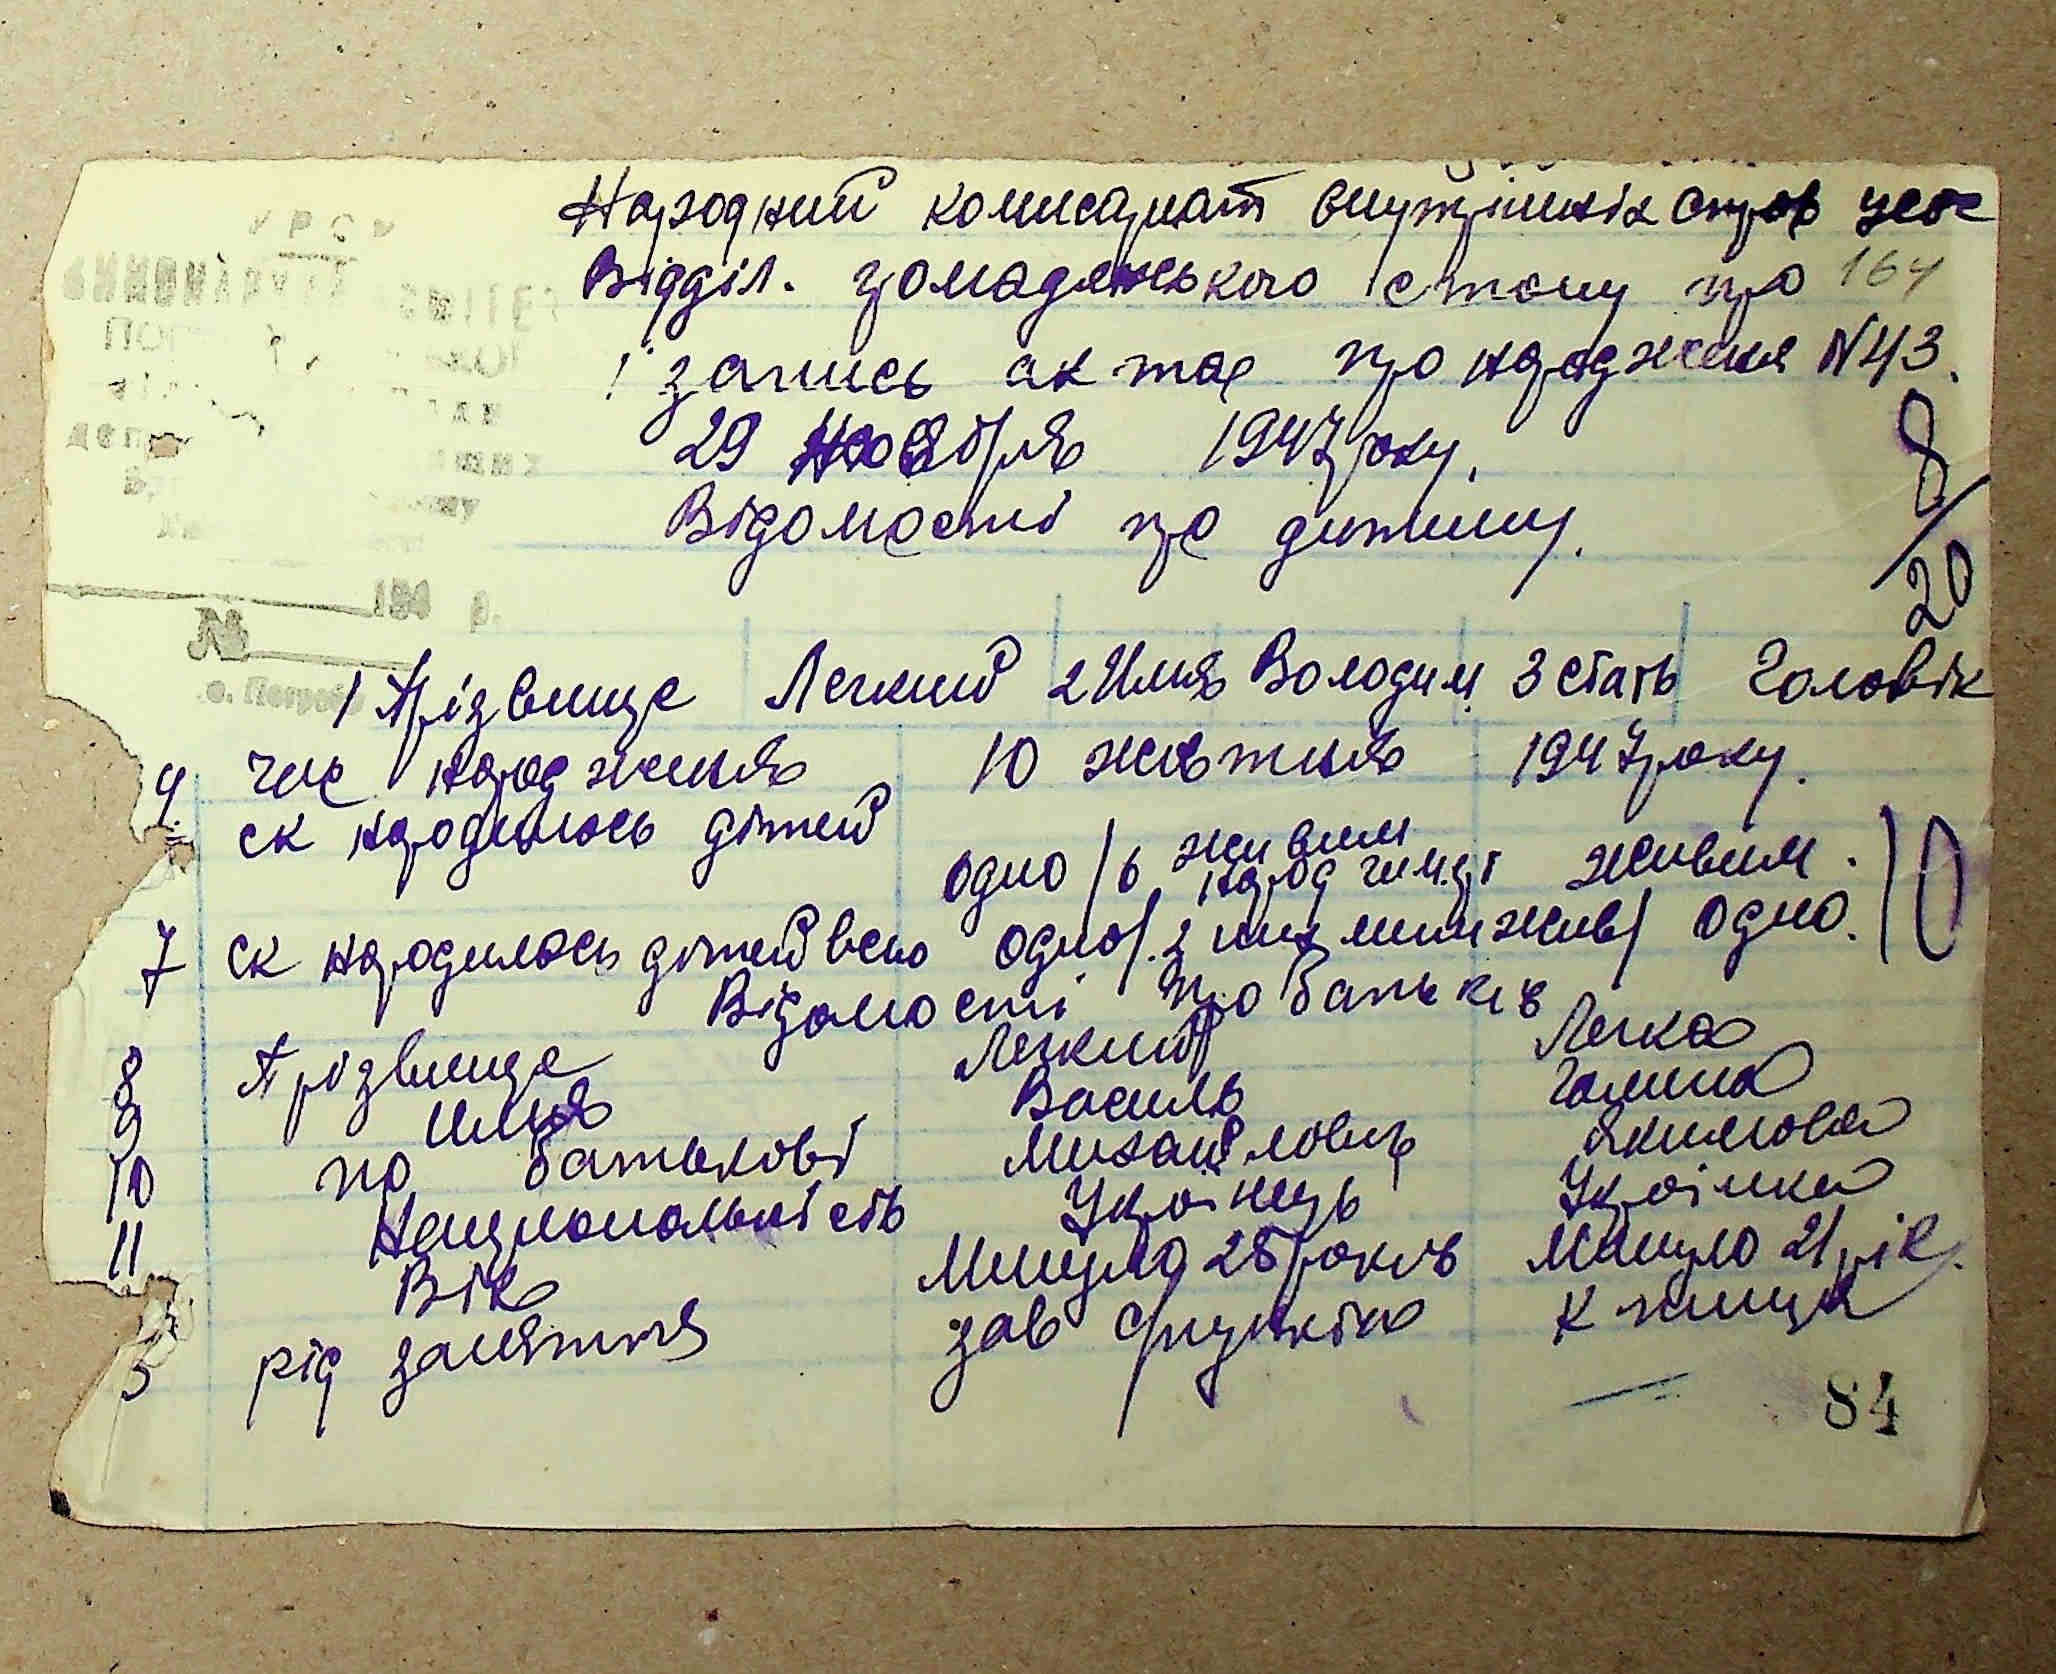 Народний комисариат внутрішніх справ УСС
Відділ. громадянського стану про 164
запись актав про народження N43.
29 Ноября 1947 року.
Відомості про дитину.
8/20
194 р.
№
с. Погреби
1 Прізвище Легкий 2 Имя Володим 3 стать Чоловік
4. час народження 10 жовтня 1947 року.
ск народилось дітей одно / 6 живим народ чи мерт живим. 10
7 ск народилось дітей всьо одно / з них лиш живі / одно.
Відомості про батьків
8 Прізвище Легкий Легка
9 имя Василь Галина
10 по батькові Михайлович Якимовна
11 Национальність Українець Українка
Вік Минуло 25 років Минуло 21 рік.
рід заняття зав
84